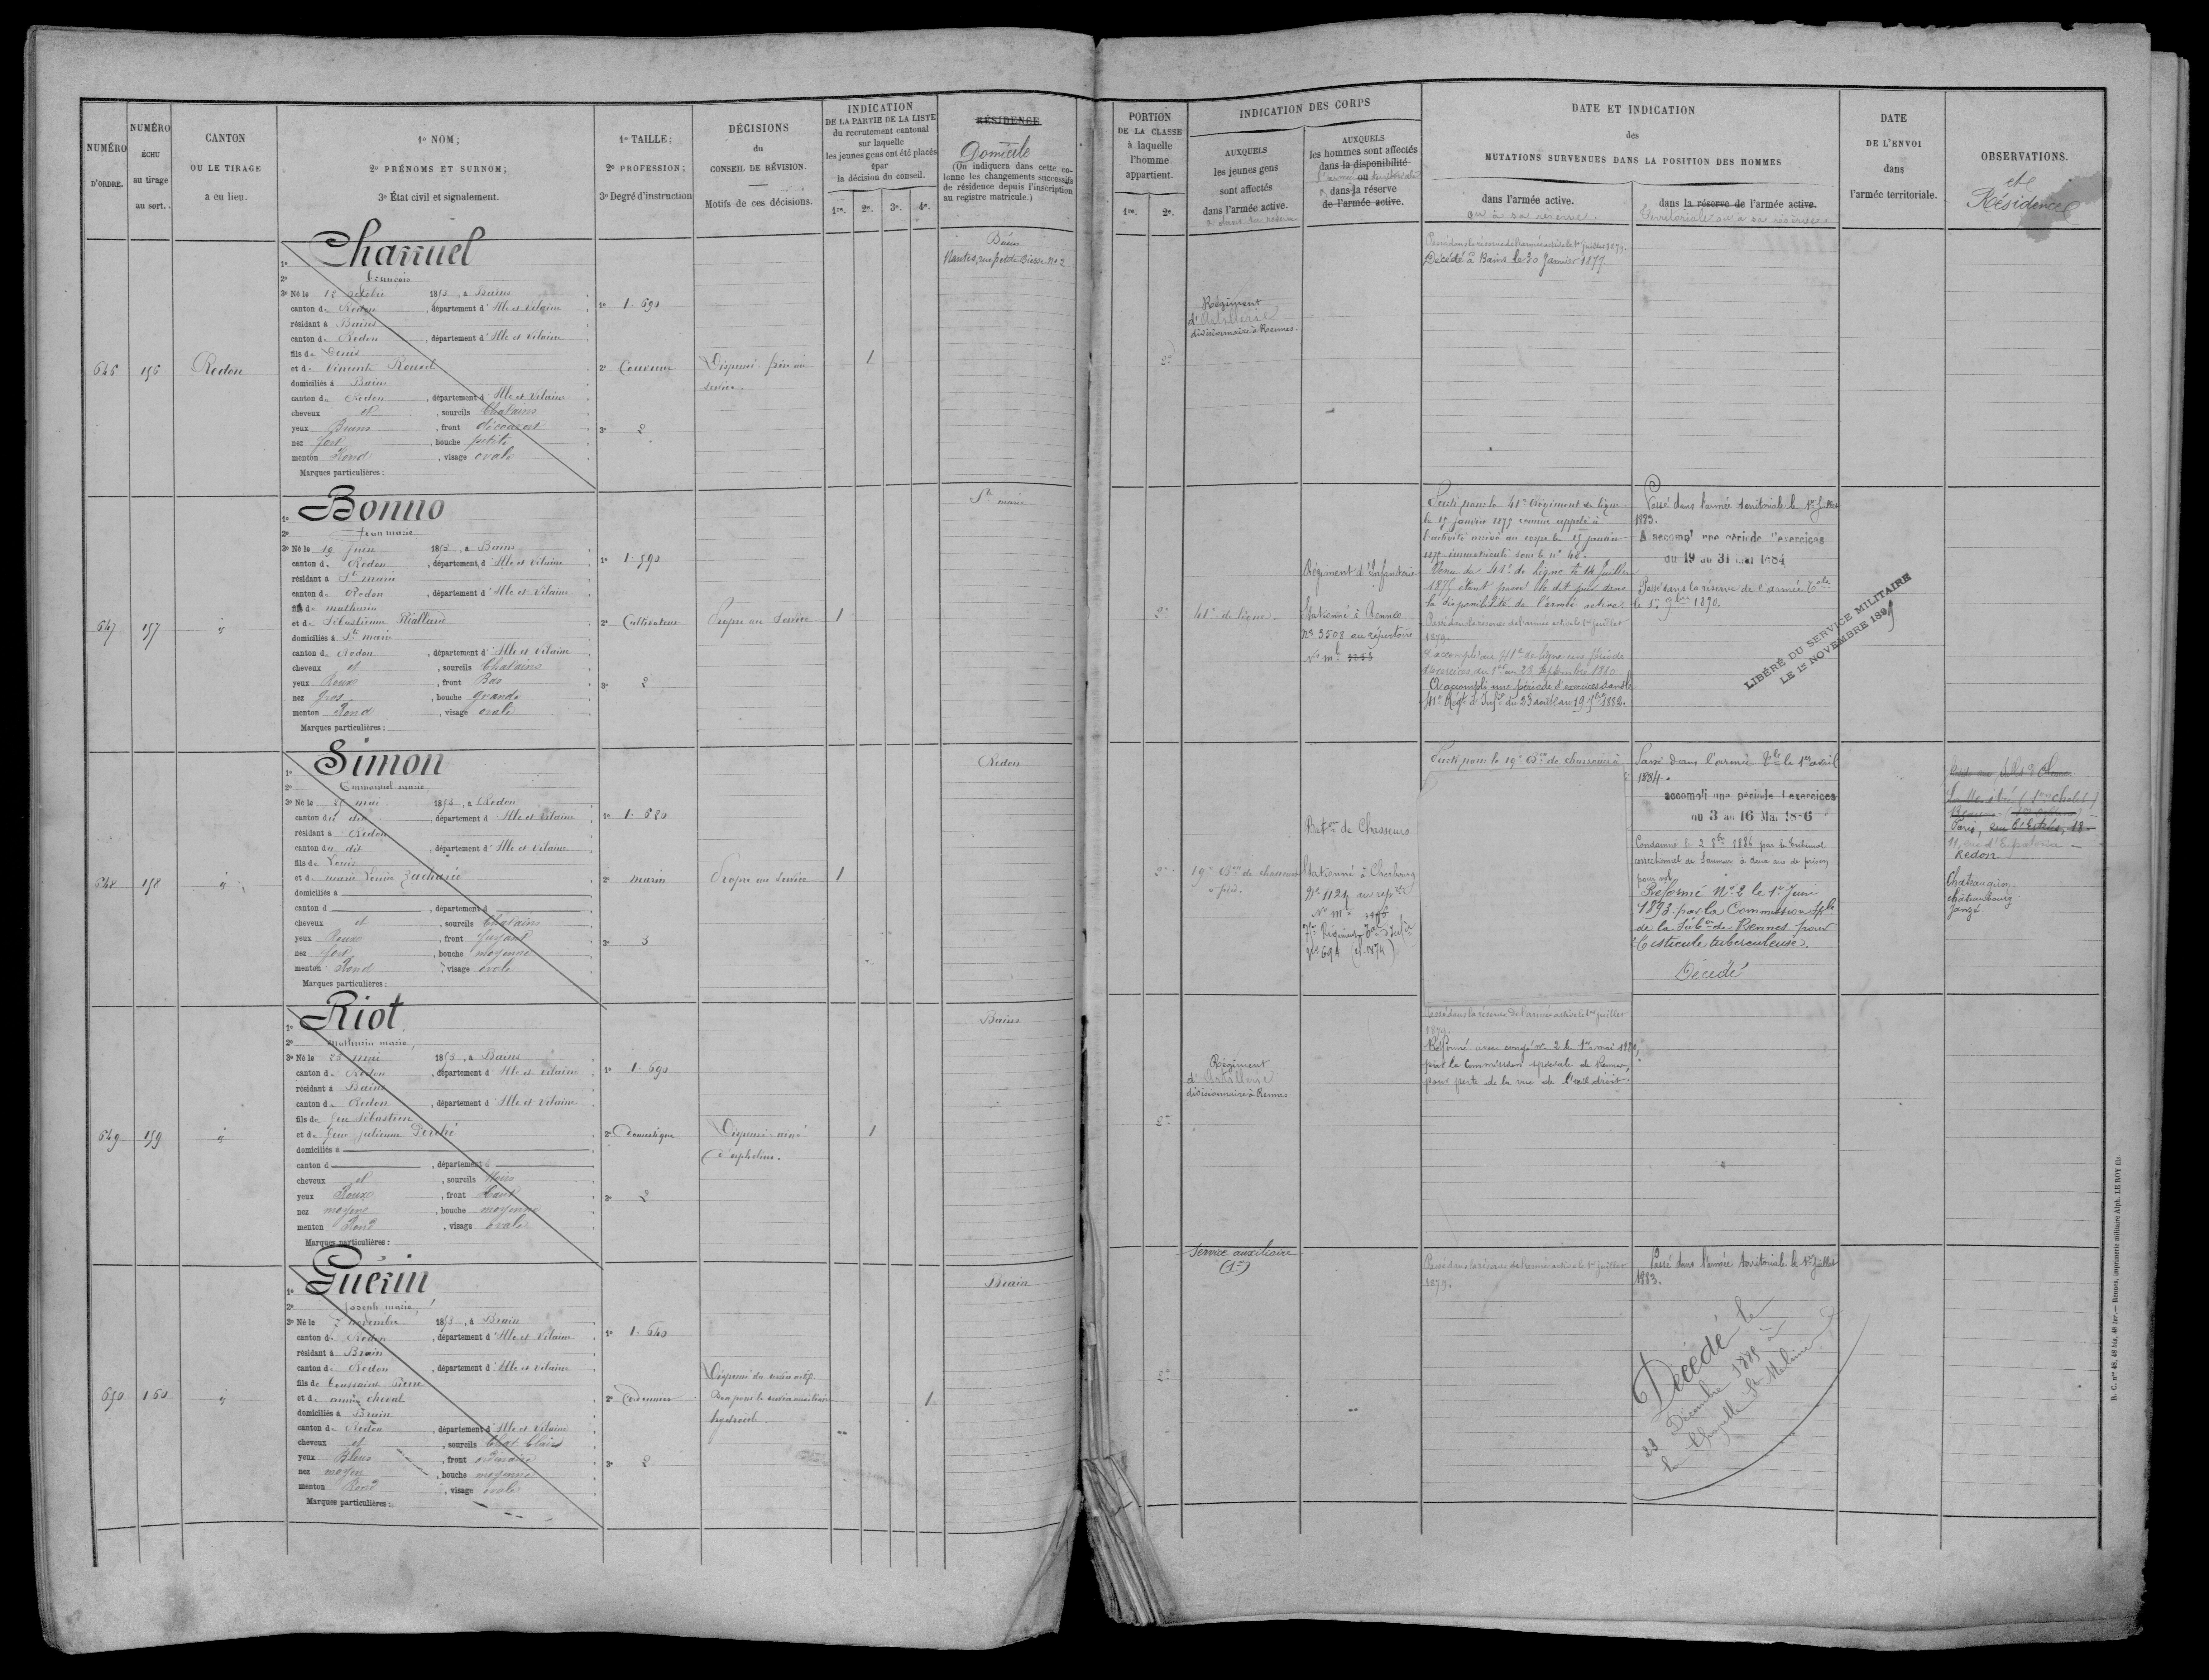 NUMÉRO
D'ORDRE.
NUMÉRO
ÉCHU
au tirage
au sort.
CANTON
OU LE TIRAGE
a eu lieu.
1º NOM;
2º PRÉNOMS ET SURNOM;
3º État civil et signalement.
1º TAILLE;
2º PROFESSION;
3º Degré d'instruction
DÉCISIONS
du
CONSEIL DE RÉVISION.
Motifs de ces décisions.
INDICATION
DE LA PARTIE DE LA LISTE
du recrutement cantonal
sur laquelle
les jeunes gens ont été placés
par
la décision du conseil.
1re. 2e. 3e. 4e.
RÉSIDENCE
Domicile
(On indiquera dans cette co-
lonne les changements successifs
de résidence depuis l'inscription
au registre matricule.)
PORTION
DE LA CLASSE
à laquelle
l'homme
appartient.
1re. 2e.
INDICATION DES CORPS
AUXQUELS
les jeunes gens
sont affectés
dans l'armée active.
AUXQUELS
les hommes sont affectés
dans la disponibilité
ou
dans la réserve
de l'armée active.
DATE ET INDICATION
des
MUTATIONS SURVENUES DANS LA POSITION DES HOMMES
dans l'armée active.
ou à sa réserve.
dans la réserve de l'armée active.
territoriale ou à sa réserve.
DATE
DE L'ENVOI
dans
l'armée territoriale.
OBSERVATIONS.
et
Résidence
646 156 Redon
1º Charruel
2º François
3º Né le 12 octobre 1853, à Bains
canton de Redon, département d'Ille et Vilaine
résidant à Bains
canton de Redon, département d'Ille et Vilaine
fils de Denis
et de Vincente
domiciliés à Bains
canton de Redon, département d'Ille et Vilaine
cheveux et, sourcils Chatains
yeux Bruns, front découvert
nez fort, bouche petite
menton Rond, visage ovale
Marques particulières:
1º 1.690
2º Couvreur
3º 2
Dispensé. frère au
service.
1
Bains
Nantes, rue petite Biesse Nº 2
2e
Régiment
d'Artillerie
divisionnaire à Rennes.
Passé dans la réserve de l'armée active le 1er juillet 1879.
Décédé à Bains le 30 Janvier 1877.
647 157 id
1º Bonno
2º Jean marie
3º Né le 19 Juin 1853, à Bains
canton de Redon, département d'Ille et Vilaine
résidant à Ste marie
canton de Redon, département d'Ille et Vilaine
fils de mathurin
et de Sébastienne Rialland
domiciliés à Ste marie
canton de Redon, département d'Ille et Vilaine
cheveux et, sourcils Chatains
yeux Roux, front Bas
nez gros, bouche grande
menton Rond, visage ovale
Marques particulières:
1º 1.590
2º Cultivateur
3º 2
Propre au Service
1
Ste marie
2e
41e de ligne.
Régiment d'Infanterie
Stationné à Rennes
Nº 3508 au répertoire
Nº mle
Parti pour le 41e Régiment de ligne
le 15 janvier 1875 comme appelé à
l'activité arrivé au corps le 15 janvier
1875 immatriculé sous le nº 40.
Venu du 41e de ligne le 14 Juillet
1875 étant passé le dit jour dans
la disponibilité de l'armée active.
Passé dans la réserve de l'armée active le 1er Juillet
1879.
A accompli au 41e de ligne une période
d'exercices du au 23 septembre 1880
A accompli une période d'exercices dans le
41e Régt d'Infie du 23 août au 19 7bre 1882.
Passé dans l'armée territoriale le 1er Juillet
1883.
A accompl une période d'exercices
du 19 au 31 Mai 1884
Passé dans la réserve de l'armée Tale
le 1er 9bre 1890.
LIBÉRÉ DU SERVICE MILITAIRE
LE 1er NOVEMBRE 1899
648 158 id
1º Simon
2º Emmanuel marie
3º Né le 25 mai 1853, à Redon
canton du dit, département d'Ille et Vilaine
résidant à Redon
canton du dit, département d'Ille et Vilaine
fils de Louis
et de marie Louise Zacharie
domiciliés à
canton d, département d
cheveux et, sourcils Chatains
yeux Roux, front fuyant
nez fort, bouche moyenne
menton Rond, visage ovale
Marques particulières:
1º 1.680
2º marin
3º 3
Propre au Service
1
Redon
2e
19e Bon de chasseurs
à pied.
Baton de Chasseurs
Stationné à Cherbourg
Nº 1124 au repre
Nº mle
75e Régiment Tal d'Infie
Parti pour le 19e Bon de chasseurs à
Passé dans l'armée Tle le 1er avril
1884.
accompli une période d'exercices
du 3 au 16 Mai 1886
Condamné le 2 8bre 1886 par le tribunal
correctionnel de Saumur à deux ans de prison
pour vol.
Réformé Nº 2 le 1er Juin
1893 par la Commission Sple
de la Subon de Rennes pour
testicule tuberculeuse.
Décédé
Paris, rue d'Estrées, 18
11, rue d'Eupatoria
Redon
Chateaugiron
chateaubourg
Janzé
649 159 id
1º Riot
2º Mathurin marie,
3º Né le 23 mai 1853, à Bains
canton de Redon, département d'Ille et Vilaine
résidant à Bains
canton de Redon, département d'Ille et Vilaine
fils de feu Sébastien
et de feue Julienne
domiciliés à
canton d, département d
cheveux et, sourcils Noirs
yeux Roux, front haut
nez moyen, bouche moyenne
menton Rond, visage ovale
Marques particulières:
1º 1.690
2º Domestique
3º 2
Dispensé. ainé
d'orphelins.
1
Bains
2e
Régiment
d'Artillerie
divisionnaire à Rennes
Passé dans la réserve de l'armée active le 1er juillet
1879.
Réformé avec congé nº 2 le 1er mai 1880,
par la Commission spéciale de Rennes,
pour perte de la vue de l'œil droit.
650 160 id
1º Guérin
2º Joseph marie
3º Né le 7 novembre 1853, à Brain
canton de Redon, département d'Ille et Vilaine
résidant à Brain
canton de Redon, département d'Ille et Vilaine
fils de Toussaint Pierre
et de anne cheval
domiciliés à Brain
canton de Redon, département d'Ille et Vilaine
cheveux et, sourcils Chat. Clairs
yeux Bleus, front ordinaire
nez moyen, bouche moyenne
menton Rond, visage ovale
Marques particulières:
1º 1.640
2º Cordonnier
3º 2
Dispensé du service actif.
Bon pour le service auxiliaire
hydrocèle.
1
Brain
2e
Service auxiliaire
Passé dans la réserve de l'armée active le 1er juillet
1879.
Passé dans l'armée territoriale le 1er Juillet
1883.
Décédé le
23 Décembre 1885 à
la Chapelle St Melaine
R. C. nos 46, 46 bis, 46 ter. — Rennes, imprimerie militaire Alph. LE ROY fils